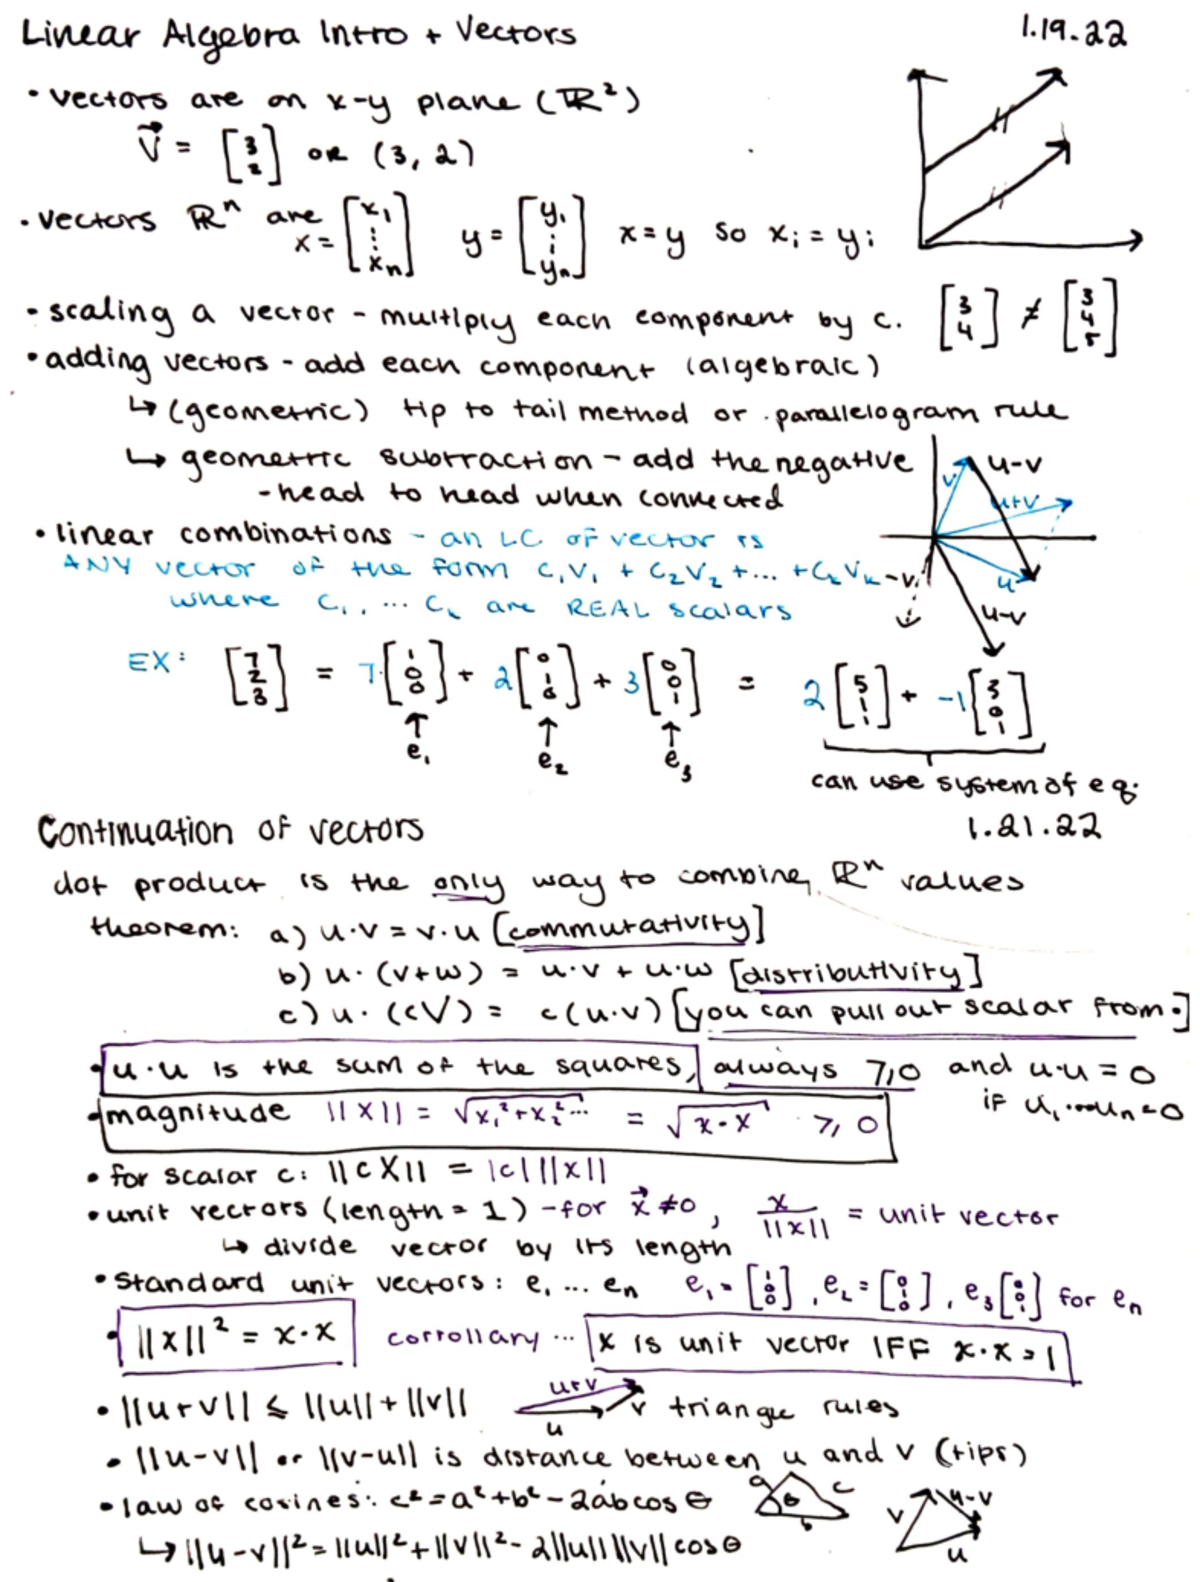 Linear Algebra Intro + Vectors 1.19.22
• vectors are on x-y plane (ℝ²)
v⃗ = [3 2] or (3, 2)
• vectors ℝⁿ are x = [x₁ ⋮ xₙ] y = [y₁ ⋮ yₙ] x = y so xᵢ = yᵢ
• scaling a vector - multiply each component by c. [3 4] ≠ [3 4 5]
• adding vectors - add each component (algebraic)
↳ (geometric) tip to tail method or parallelogram rule
↳ geometric subtraction - add the negative
- head to head when connected
v u-v u+v u -v u-v
• linear combinations - an LC of vector is
ANY vector of the form c₁v₁ + c₂v₂ + ... + cₖvₖ
where c₁, ... cₖ are REAL scalars
EX: [7 2 3] = 7·[1 0 0] + 2[0 1 0] + 3[0 0 1] = 2[5 1 1] + -1[3 0 1]
e₁ e₂ e₃
can use system of eq.
Continuation of vectors 1.21.22
dot product is the only way to combine ℝⁿ values
theorem: a) u·v = v·u [commutativity]
b) u·(v+w) = u·v + u·w [distributivity]
c) u·(cV) = c(u·v) [you can pull out scalar from ·]
• u·u is the sum of the squares, always ≥ 0 and u·u = 0
if u₁...uₙ=0
• magnitude ||X|| = √x₁²+x₂²... = √x·x ≥ 0
• for scalar c: ||cX|| = |c| ||x||
• unit vectors (length = 1) - for x⃗ ≠ 0, x/||x|| = unit vector
↳ divide vector by its length
• standard unit vectors: e₁ ... eₙ e₁ = [1 0 0], e₂ = [0 1 0], e₃ [0 0 1] for eₙ
• ||x||² = x·x corrollary ... x is unit vector IFF x·x = 1
• ||u+v|| ≤ ||u|| + ||v|| u+v u v triangle rules
• ||u-v|| or ||v-u|| is distance between u and v (tips)
• law of cosines: c² = a² + b² - 2abcos θ a θ c b v u-v u
↳ ||u-v||² = ||u||² + ||v||² - 2||u|| ||v|| cosθ